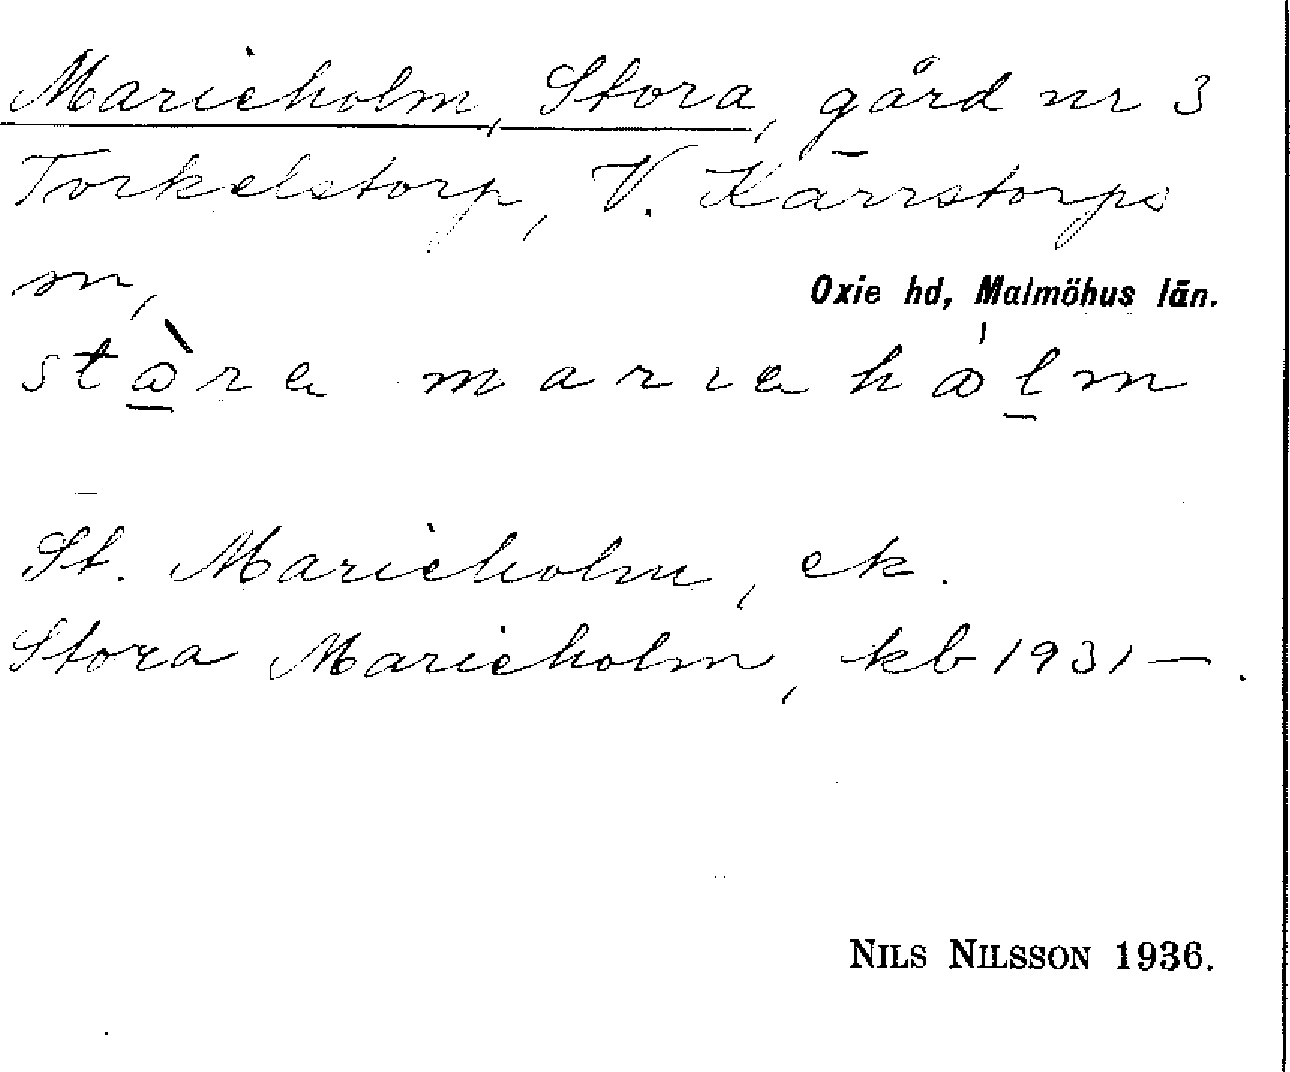 Marieholm, Stora, gård nr 3
Torkelstorp, V. Kärrstorps
sn,
Oxie hd, Malmöhus län.
St. Marieholm, ek.
Stora Marieholm, kb 1931—.
NILS NILSSON 1936.